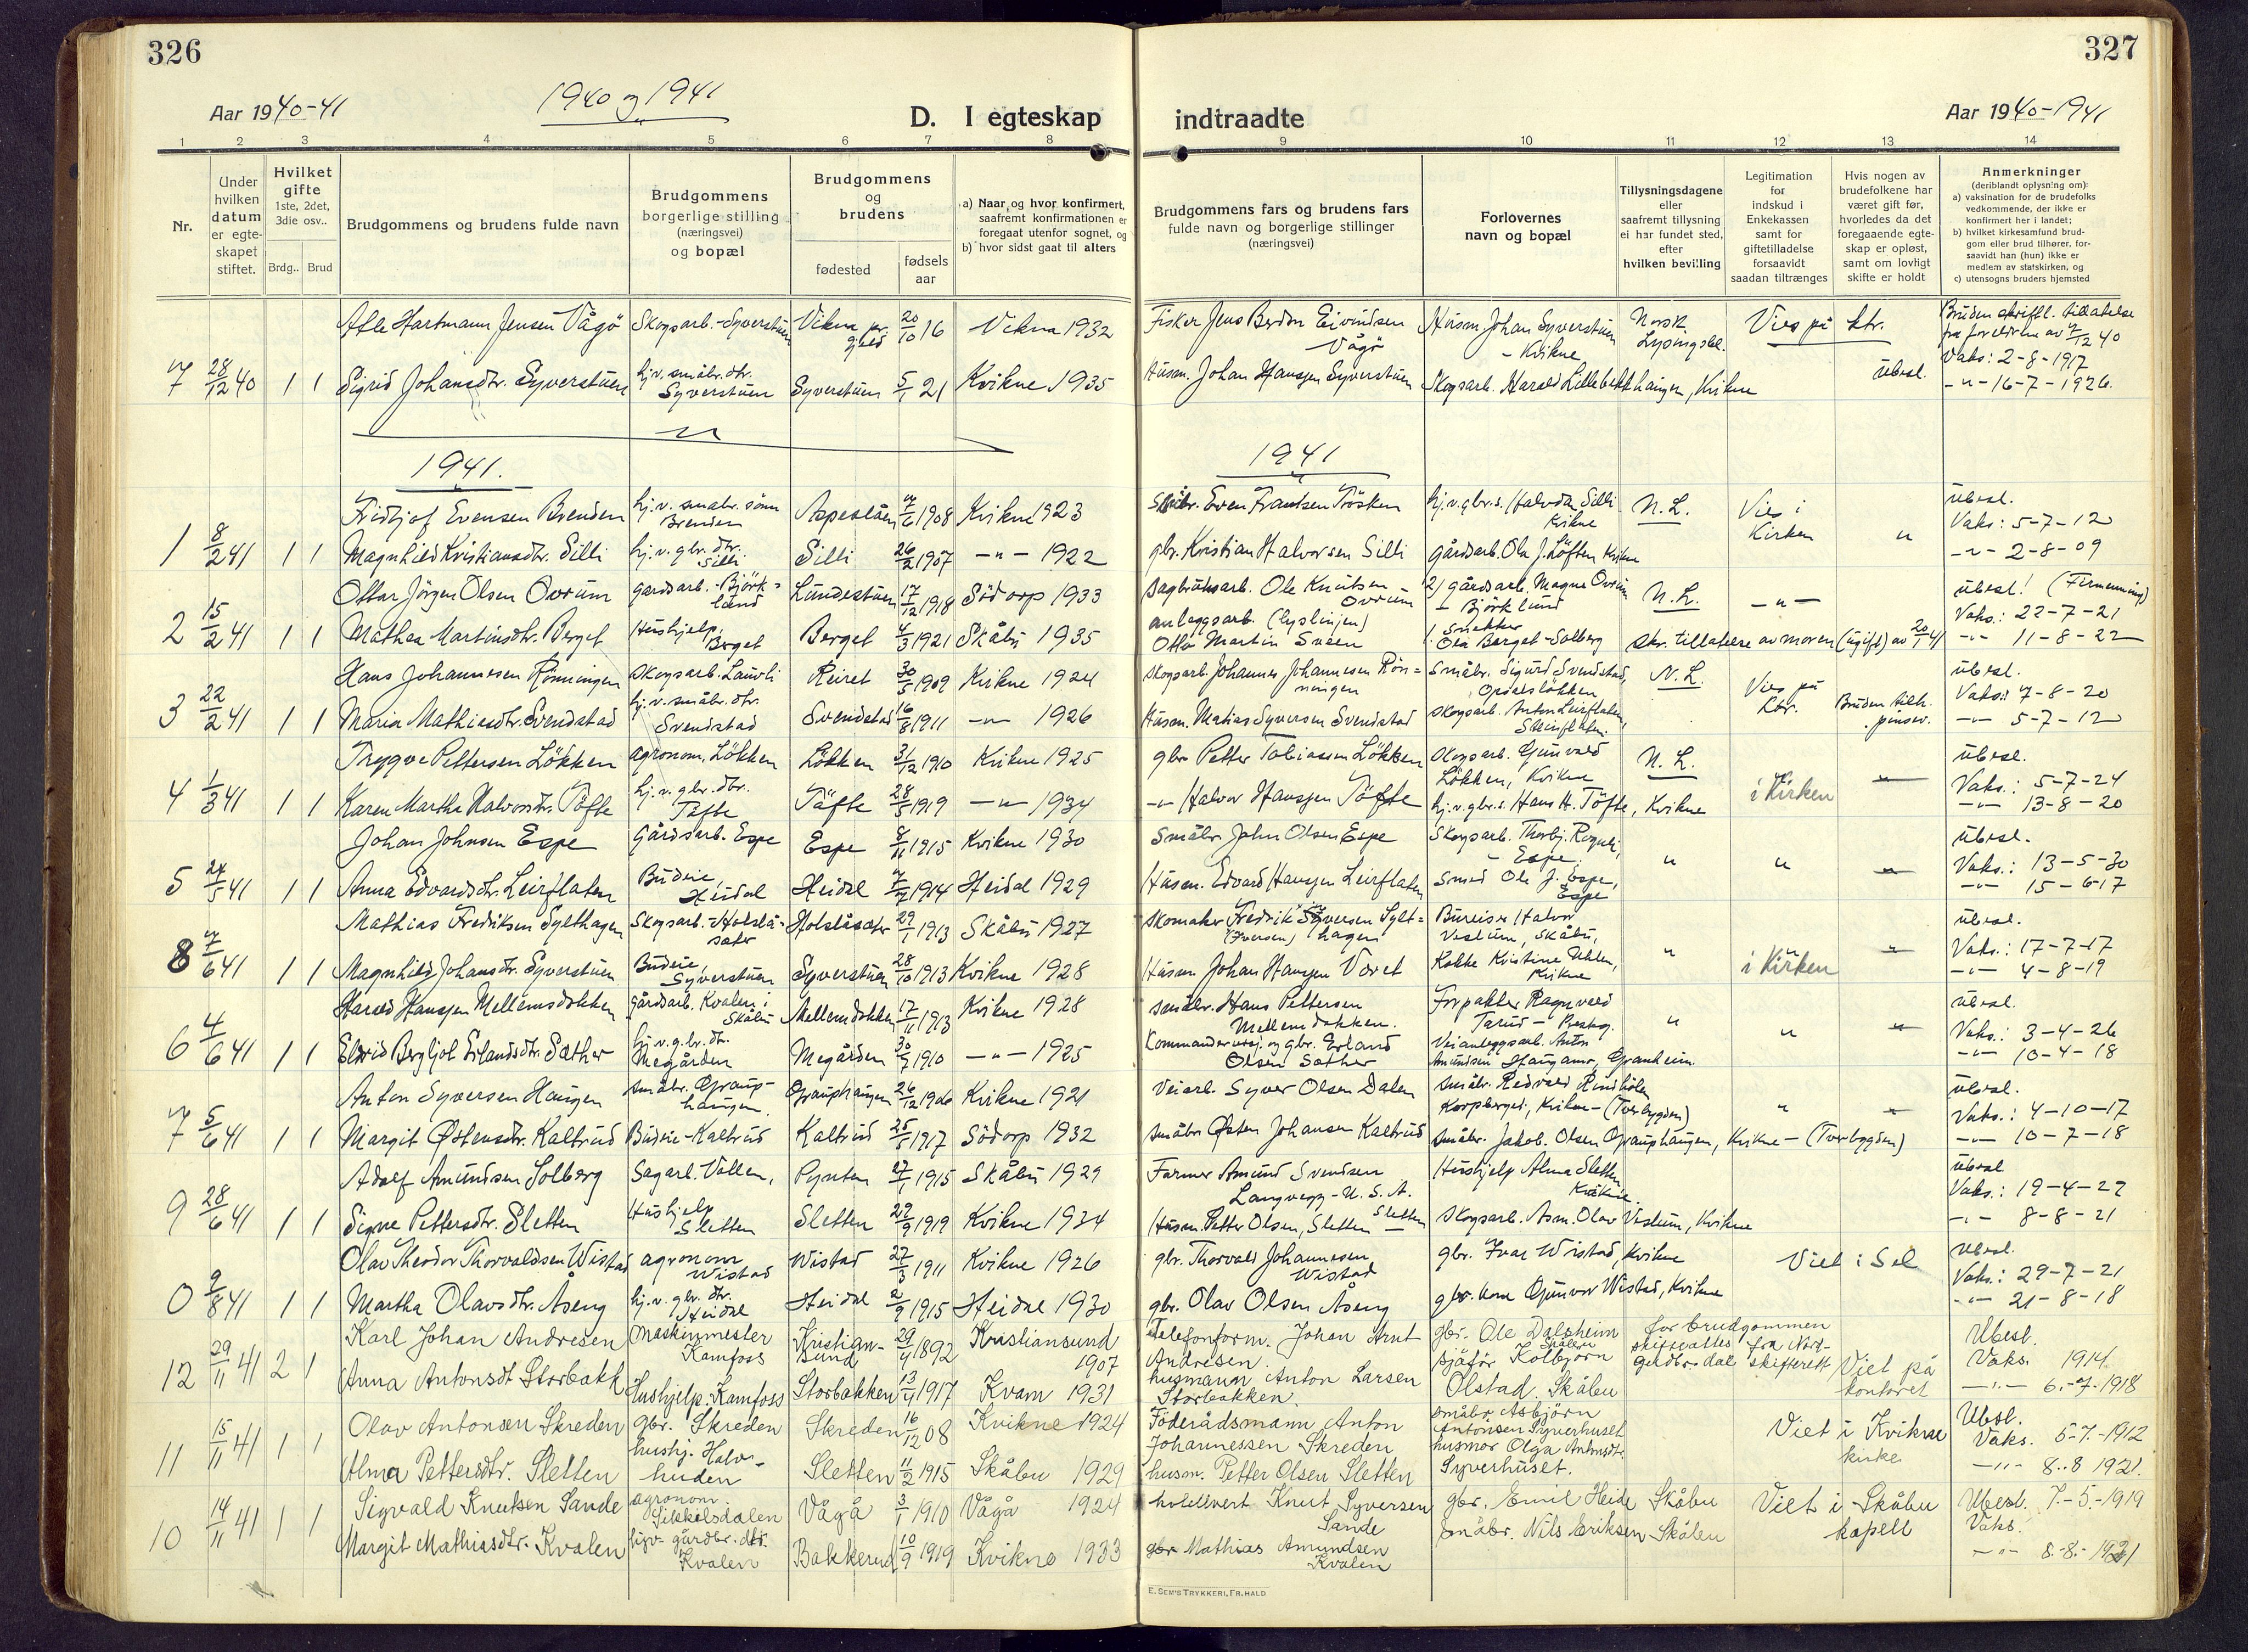 326
327
Aar 1940-41
1940 og 1941
D. I egteskap
indtraadte
Aar 1940-1941
1 2 3 4 5 6 7 8
9 10 11 12 13 14
Nr.
Under hvilken datum er egteskapet stiftet.
Hvilket gifte 1ste, 2det, 3die osv..
Brdg.. Brud
Brudgommens og brudens fulde navn
Brudgommens borgerlige stilling (næringsvei) og bopæl
Brudgommens og brudens
fødested
fødsels aar
a) Naar og hvor konfirmert, saafremt konfirmationen er foregaat utenfor sognet, og
b) hvor sidst gaat til alters
Brudgommens fars og brudens fars fulde navn og borgerlige stillinger (næringsvei)
Forlovernes navn og bopæl
Tillysningsdagene eller saafremt tillysning ei har fundet sted, efter hvilken bevilling
Legitimation for indskud i Enkekassen samt for giftetilladelse forsaavidt saadan tiltrænges
Hvis nogen av brudefolkene har været gift før, hvorledes da det foregaaende egteskap er opløst, samt om lovligt skifte er holdt
Anmerkninger (deriblandt oplysning om):
a) vaksination for de brudefolks vedkommende, der ikke er konfirmert her i landet;
b) hvilket kirkesamfund brudgom eller brud tilhører, forsaavidt han (hun) ikke er medlem av statskirken, og
c) utensogns bruders hjemsted
Hartmann Jensen Vågö Skogsarb.-Syverstuen Vikna pr.gjeld 20/10 16 Vikna 1932
Fisker Jens Eivindsen Vågö Husm Johan Syverstuen - Kvikne Norsk Lysingsbl. Vies på ktr. Bruden skriftl. tillatelse fra foreldrene av 7/12 40
7 28/12 40 1 1 Sigrid Johansdtr. Syverstuen hj.v. småbr.dtr. Syverstuen Syverstuen 5/1 21 Kvikne 1935
Husm. Johan Hansen Syverstuen Skogsarb. Harald Lillebekkhaugen, Kvikne übesl. Vaks: 2-8-1917
-"- 16-7-1926.
1941.
1941
Fridtjof Evensen Brenden hj.v. småbr. sönn Brenden 1908 Kvikne 1923
Småbr. Even Frantsen hj.v.gbr.s. Halvdan Silli Kvikne N.L. Vies i Kirken " übesl. Vaks: 5-7-12
1 8/2 41 1 1 Magnhild Kristiansdtr. Silli hj.v. gbr. dtr. Silli Silli 26/2 1907 -"- 1922
gbr. Kristian Halvorsen Silli gårdsarb. Ola J. Löften Kvikne -"- 2-8-09
Ottar Jörgen Olsen Ovrum gardsarb.-Björklund Lundestuen 17/12 1918 Södorp 1933
sagbruksarb. Ole Knutsen Ovrum 2) gårdsarb. Magne Ovrum - Björklund N.L. -"- übesl! Vaks: 22-7-21
2 15/2 41 1 1 Mathea Martinsdtr. Berget Hushjelp, Berget Berget 4/3 1921 Skåbu 1935
anleggsarb. Otto Martin Sveen 1. Snekker Ola Berget-Solberg skr. tillatelse av moren (ugift) av 20/1 41 -"- 11-8-22
Hans Johannesen Rönningen skogsarb. Lauvli Reiret 1909 Kvikne 1924
Skogsarb. Johannes Johannesen Rönningen Småbr. Sigurd Svendstad, N.L. Vies på ktr. übesl. Vaks: 7-8-20
3 22/2 41 1 1 Maria Mathiasdtr. Svendstad hj.v. småbr.dtr. Svendstad Svendstad 16/8 1911 -"- 1926
Husm. Matias Syversen Svendstad Skogsarb. Anton Leirflaten, Bruden tilh. pinsev. -"- 5-7-12
Trygve Pettersen Lökken agronom, Lökken Lökken 1910 Kvikne 1925
gbr Petter Tobiassen Lökken Skogsarb. Gunvald Lökken, Kvikne N.L. i Kirken -"- übesl. Vaks.: 5-7-24
4 1/3 41 1 1 Karen Marthe Halvorsdtr. Töfte hj.v.gbr.dtr. Töfte Töfte 28/5 1919 -"- 1934
-"- Halvor Hansen Töfte hj.v.gbr.s. Hans H. Töfte, Kvikne -"- 13-8-20
Johan Johnsen Espe Gårdsarb. Espe Espe 1915 Kvikne 1930
Småbr John Olsen Espe Skogsarb. Thorbj. - Espe. " " -"- übesl. Vaks.: 13-5-30
5 24/5 41 1 1 Anna Edvardsdtr. Leirflaten Budeie, Heidal Heidal 1914 Heidal 1929
Husm. Edvard Hansen Leirflaten Smed Ole J. Espe, Espe -"- 15-6-17
Mathias Fredriksen Sylthagen Skogsarb.-Holslåsæter Holslåsæter 29/1 1913 Skåbu 1927
Skomaker Fredrik Syversen Sylthagen (Iversen) Bureiser Halvor Veslum, Skåbu, " i Kirken -"- übesl. Vaks.: 17-7-17
8 7/6 41 1 1 Magnhild Johansdtr. Syverstuen Budeie, Syverstuen Syverstuen 28/10 1913 Kvikne 1928
Husm Johan Hansen Kokke Kristine Kvikne -"- 4-8-19
Harald Hansen Mellemsdokken gårdsarb. Kvalen i Skåbu Mellemdokken 17/11 1913 Kvikne 1928
småbr. Hans Pettersen Mellemdokken. Forpakter Ragnvald " " -"- übesl. Vaks.: 3-4-26
6 4/6 41 1 1 Eldrid Bergljot Erlandsdtr. Sæther hj.v.g.br.dtr. Megården Megården 1910 -"- 1925
gbr. Erland Olsen Sæther Veianleggsarb. Anton Amundsen -"- 10-4-18
Anton Syversen Haugen småbr. Grauphaugen. Grauphaugen 26/12 1906 Kvikne 1921
Veiarb. Syver Olsen Dalen småbr. Redvald Korpberget, Kvikne-(Tverbygden) " -"- übesl. Vaks.: 4-10-17
7 5/6 41 1 1 Margit Østensdtr. Kaltrud Budeie-Kaltrud Kaltrud 25/5 1917 Södorp 1932
Småbr Østen Johansen Kaltrud småbr. Jakob. Olsen Grauphaugen, Kvikne-(Tverbygden) -"- 10-7-18
Adolf Amundsen Solberg Sagarb. Vollen, Pynten 27/1 1915 Skåbu 1929
Farmer Amund Svendsen Langvegg-U.S.A. Hushjelp Alma Sletten Kvikne. übesl Vaks.: 19-4-22
9 28/6 41 1 1 Signe Pettersdtr. Sletten Hushjelp Sletten Sletten 22/9 1919 Kvikne 1934
Husm. Petter Olsen, Sletten Skogsarb. Asm. Olav Veslum, Kvikne -"- 8-8-21
Olav Theodor Thorvaldsen Wistad agronom Wistad Wistad 27/3 1911 Kvikne 1926
gbr. Thorvald Johannesen Wistad gbr. Ivar Wistad, Kvikne Viet i Sel übesl. Vaks.: 29-7-21
0 9/8 41 1 1 Martha Olavsdtr. Åseng hj.v.gbr.dtr. Heidal Heidal 2/9 1915 Heidal 1930
gbr. Olav Olsen Åseng gbr. kone Gunvor Wistad, Kvikne -"- 21-8-18
Karl Johan Andresen maskinmester Kamfoss Kristiansund 29/4 1892 Kristiansund 1907
Telefonform. Johan Arnt Andresen. gbr. Ole Dalsheim Skåbu for brudgommen skifteattest fra Nord-gudbr.dal skifterett Ubesl. Vaks. 1914
12 29/11 41 2 1 Anna Antonsdt Storbakk Hushjelp. Kamfoss Storbakken 13/4 1917 Kvam 1931
husmann Anton Larsen Storbakken. sjåfør Kolbjørn Olstad. Skåbu Viet på kontoret -"- 6.-7-1918
Olav Antonsen Skreden gbr. Skreden Skreden 16/12 08 Kvikne 1924
Föderådsmann Anton Johannessen Skreden småbr Asbjörn Antonsen Syverhuset Viet i Kvikne kirke Ubesl. Vaks. 5-7.-1912
11 15/11 41 1 1 Alma Pettersdtr. Sletten hushj. Sletten 11/2 1915 Skåbu 1929
husm. Petter Olsen Sletten husmor Olga Antonsdtr. Syverhuset. -"- 8..8 1921.
Sigvald Knutsen Sande agronom. Sikkilsdalen Vågå 3/1 1910 Vågå 1924
hotellvert Knut Syversen Sande gbr. Emil Heide Skåbu Viet i Skåbu kapell Ubesl. 7.-5.-1919 Vaks.
10 14/11 41 1 1 Margit Mathiasdtr. Kvalen hjv-gårdbr.dtr. Kvalen Bakkerud 10/9 1919 Kvikne 1933
gbr Mathias Amundsen Kvalen småbr. Nils Eriksen Skåbu -"- 8.-8.-1921
E. SEM'S TRYKKERI, FR.HALD